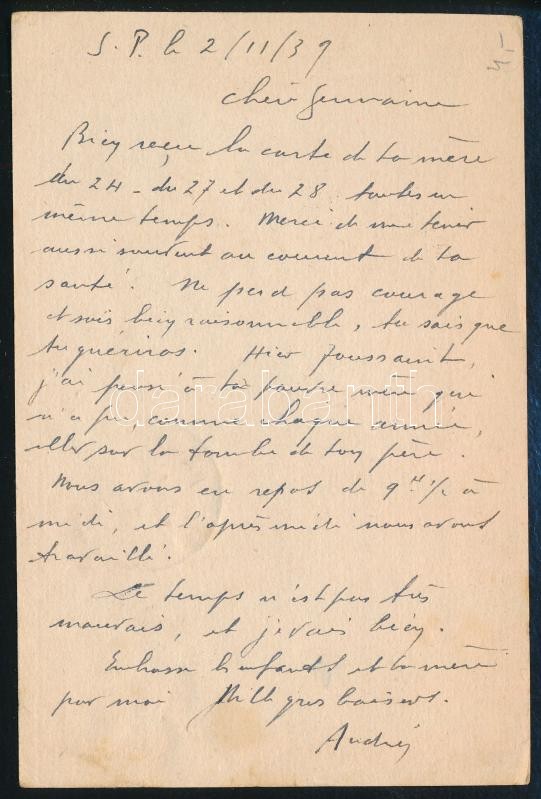 S. P. le 2/11/39
Chère Germaine
Bien reçu la carte de ta mère
du 24 - du 27 et du 28 toutes en
même temps. Merci de me tenir
aussi souvent au courant de ta
santé. Ne perd pas courage
et sois bien raisonnable, tu sais que
tu guériras. Hier Toussaint,
j'ai pensé à ta pauvre mère qui
n'a pu, comme chaque année,
aller sur la tombe de ton père.
Nous avons eu repos de 9 H 1/2 à
midi, et l'après midi nous avons
travaillé.
Le temps n'est pas très
mauvais, et je vais bien.
Embrasse les enfants et ta mère
pour moi Mille gros baisers.
André
darabanth